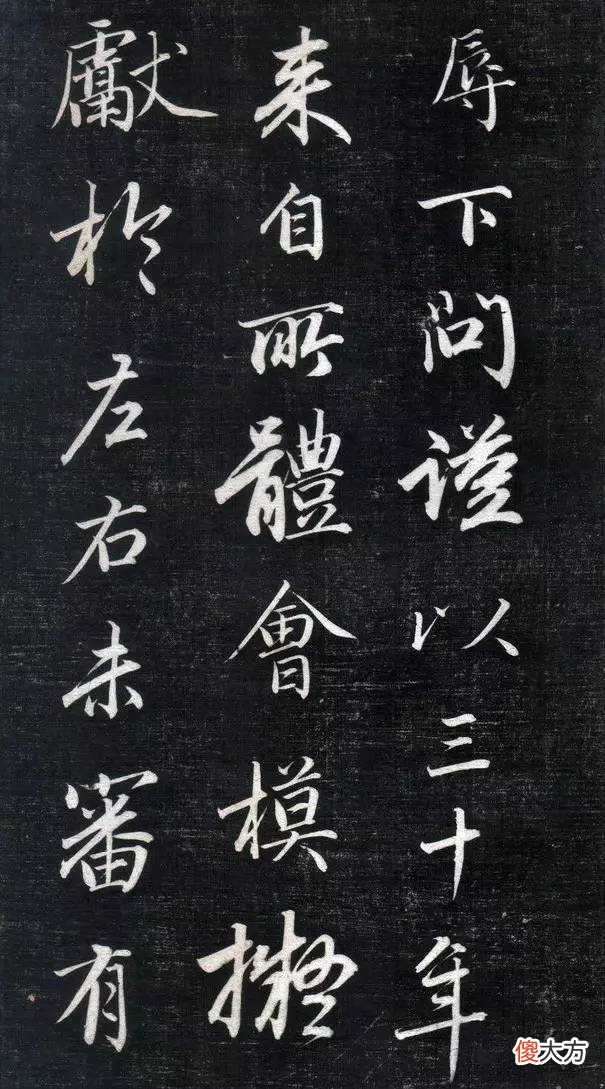 辱下問謹以三十年
来自所體會模擬
獻於左右未審有
傻大方